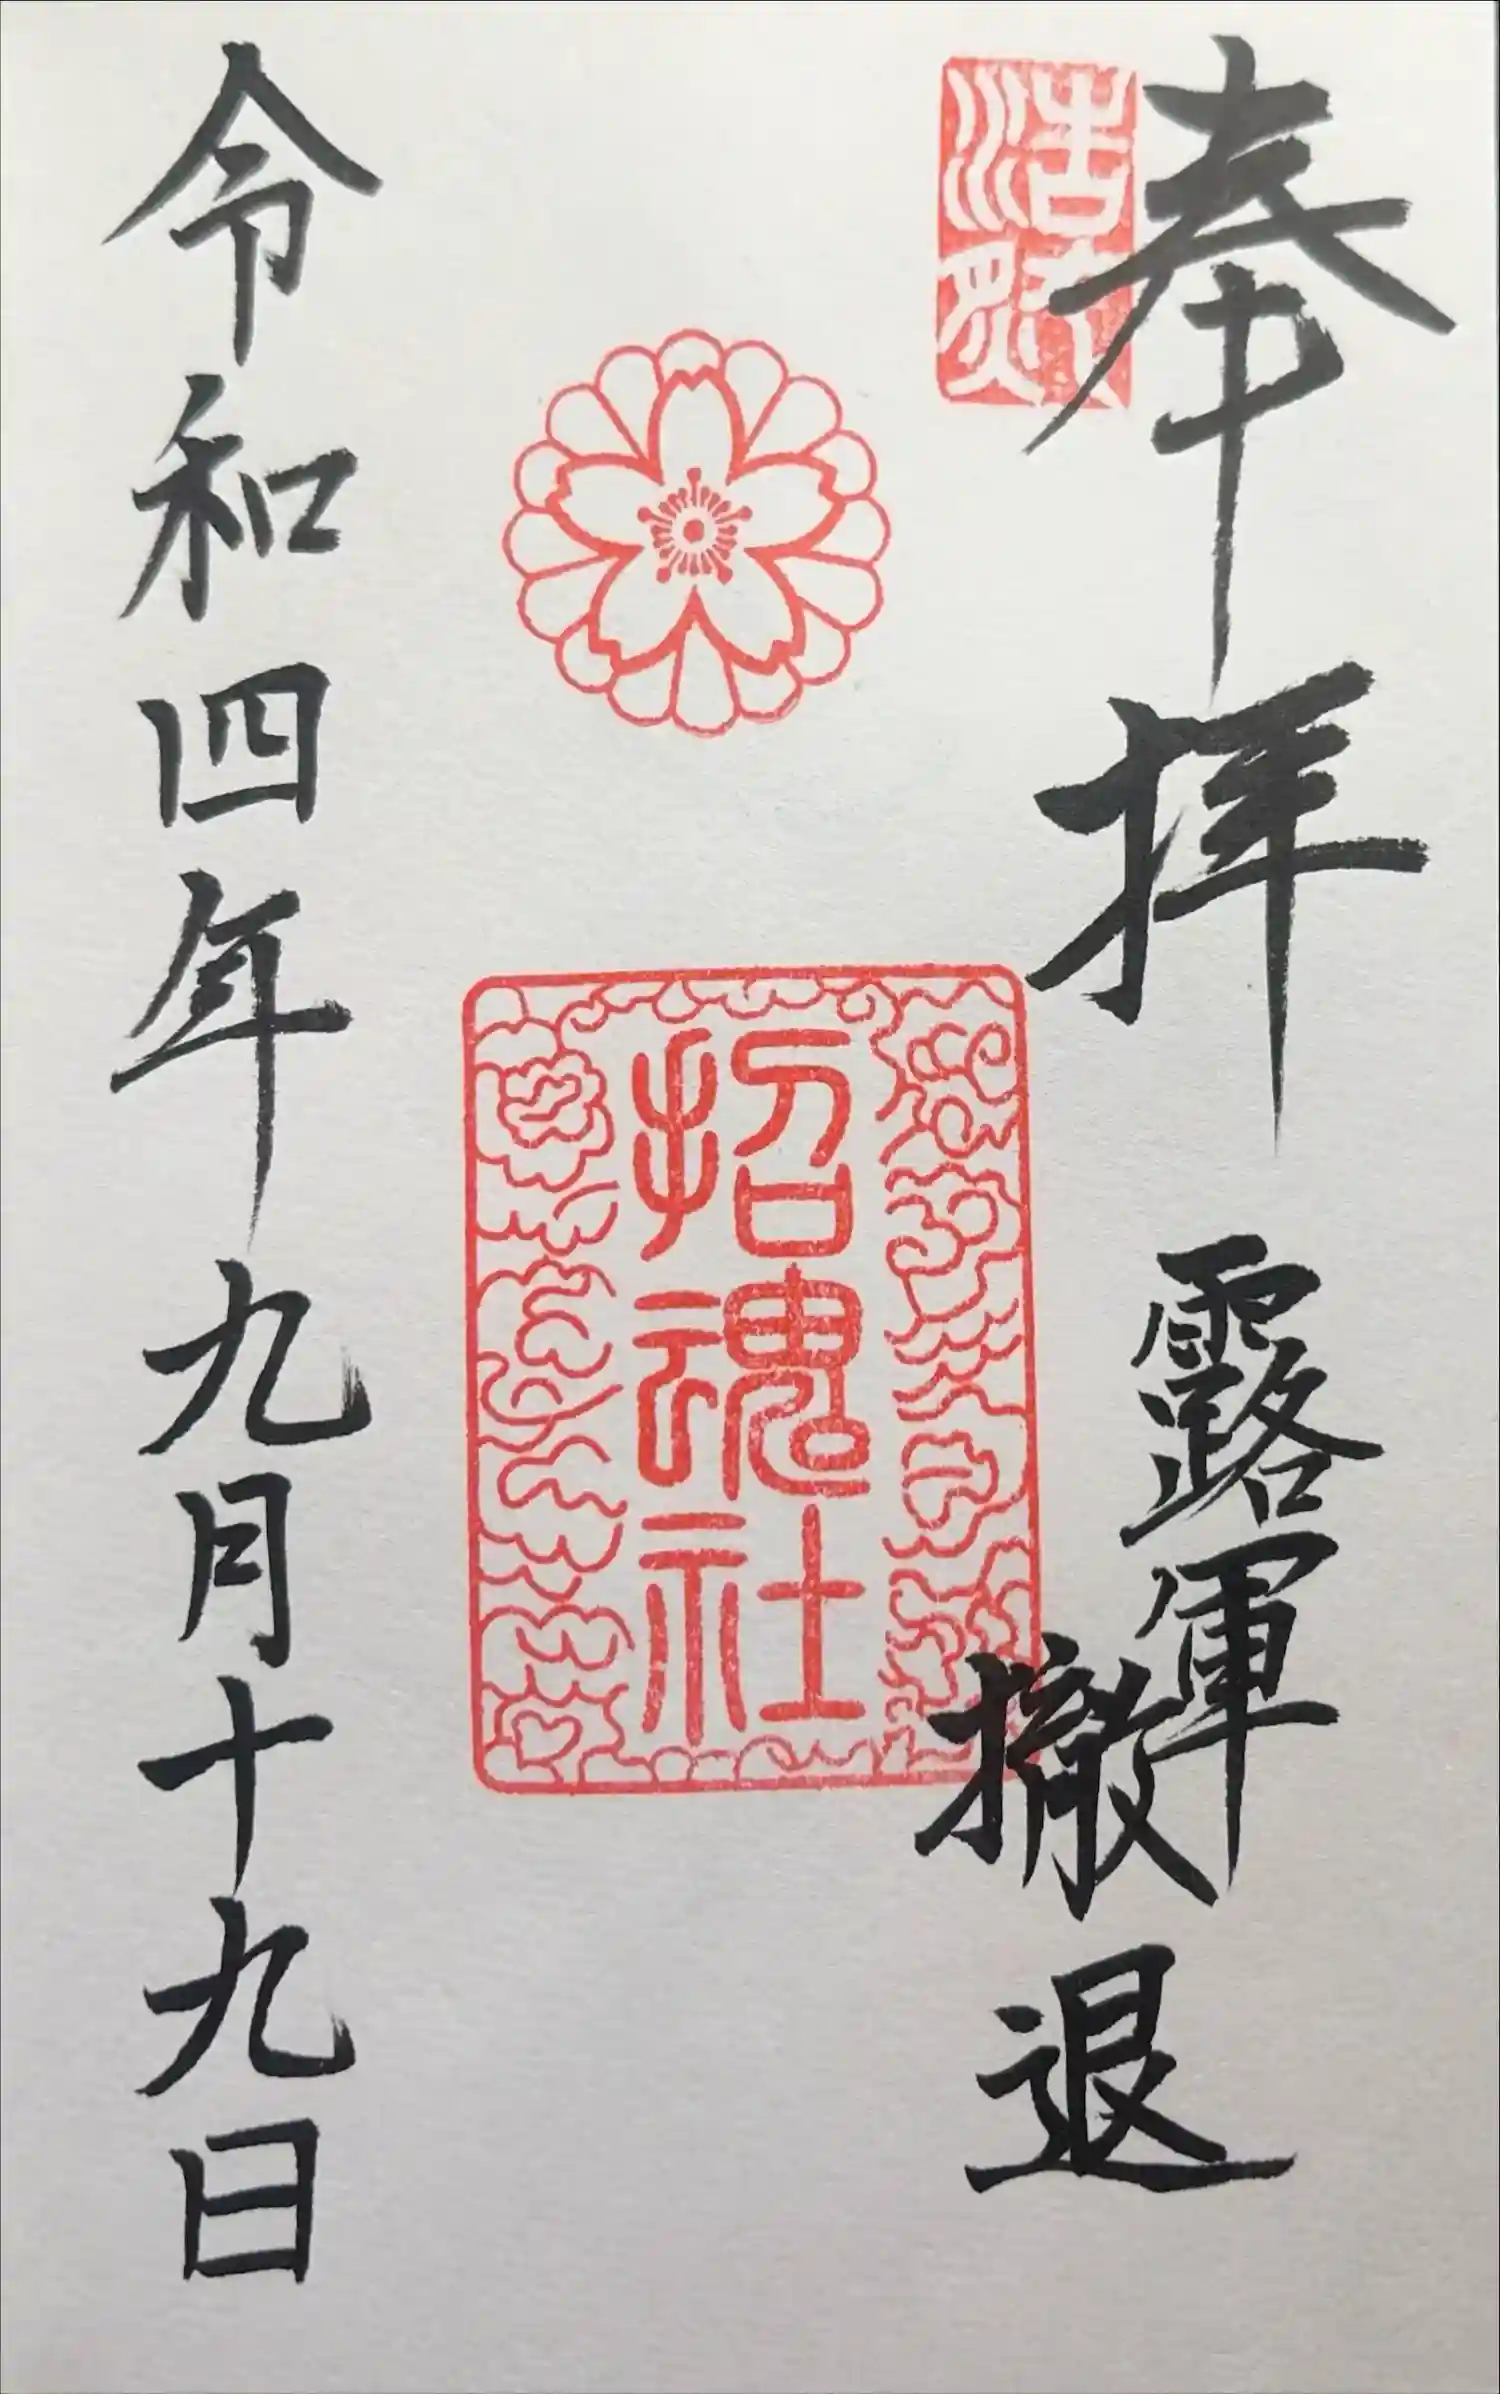 奉拝
浩然
露軍
撤退
招魂社
令和四年九月十九日